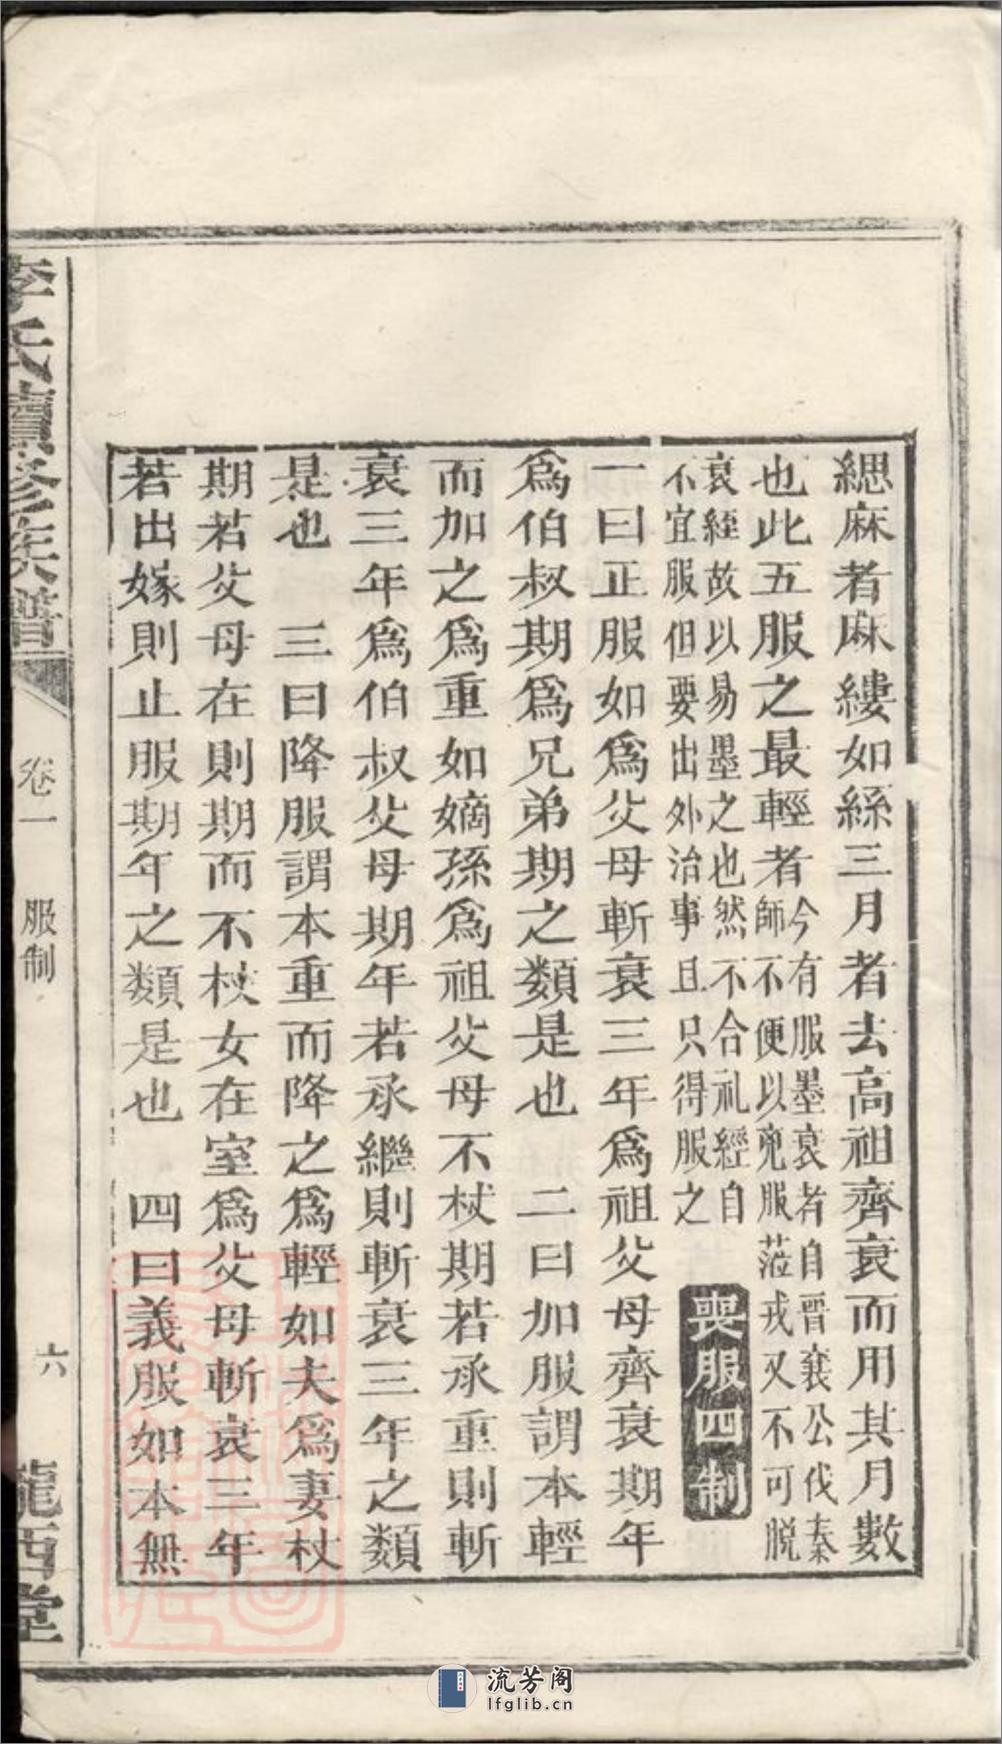 緦麻者麻縷如絲三月者去高祖齊衰而用其月數
也此五服之最輕者今有服墨衰者自晋襄公伐秦
師不便以兇服蒞戎又不可脱
衰絰故以易墨之也然不合礼經自
不宜服但要出外治事且只得服之
喪服四制
一曰正服如爲父母斬衰三年爲祖父母齊衰期年
爲伯叔期爲兄弟期之類是也 二曰加服謂本輕
而加之爲重如嫡孫爲祖父母不杖期若承重則斬
衰三年爲伯叔父母期年若承繼則斬衰三年之類
是也 三曰降服謂本重而降之爲輕如夫爲妻杖
期若父母在則期而不杖女在室爲父母斬衰三年
若出嫁則止服期年之類是也 四曰義服如本無
李氏續修族譜
卷一 服制
六
隴西堂
流芳阁
lfglib.cn